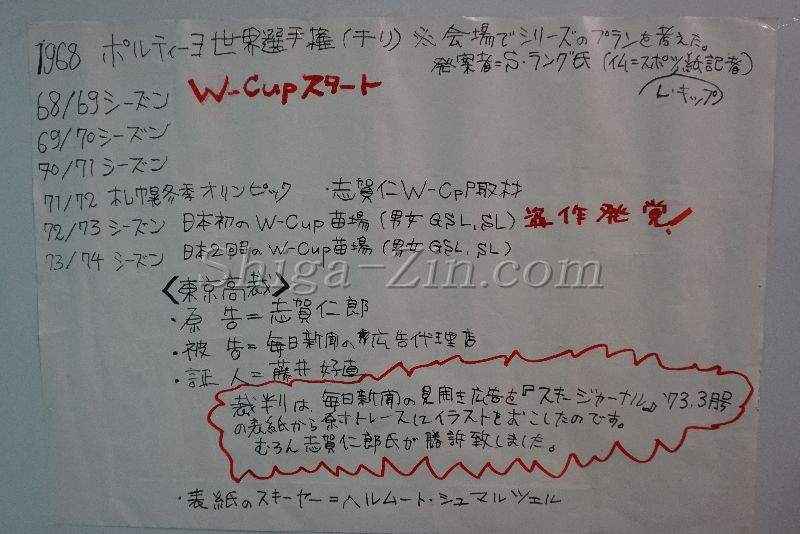 1968 ポルティーヨ世界選手権(チリ) ※ 会場でシリーズのプランを考えた。
発案者=S・ラング氏 (仏=スポーツ紙記者)
レ・キップ
W-Cupスタート
68/69シーズン
69/70シーズン
70/71シーズン
71/72 札幌冬季オリンピック ・志賀仁W-CpP取材
72/73 シーズン 日本初のW-Cup苗場(男女GSL,SL) 盗作発覚!
73/74 シーズン 日本2回目のW-Cup苗場(男女GSL,SL)
Shiga-Zin.com
〈東京高裁〉
・原告=志賀仁郎
・被告=毎日新聞の広告代理店
・証人=藤井好直
裁判は、毎日新聞の見開き広告を『スキージャーナル』'73.3月号
の表紙からトレースしイラストをおこしたのです。
むろん志賀仁郎氏が勝訴致しました。
・表紙のスキーヤー=ヘルムート・シュマルツェル